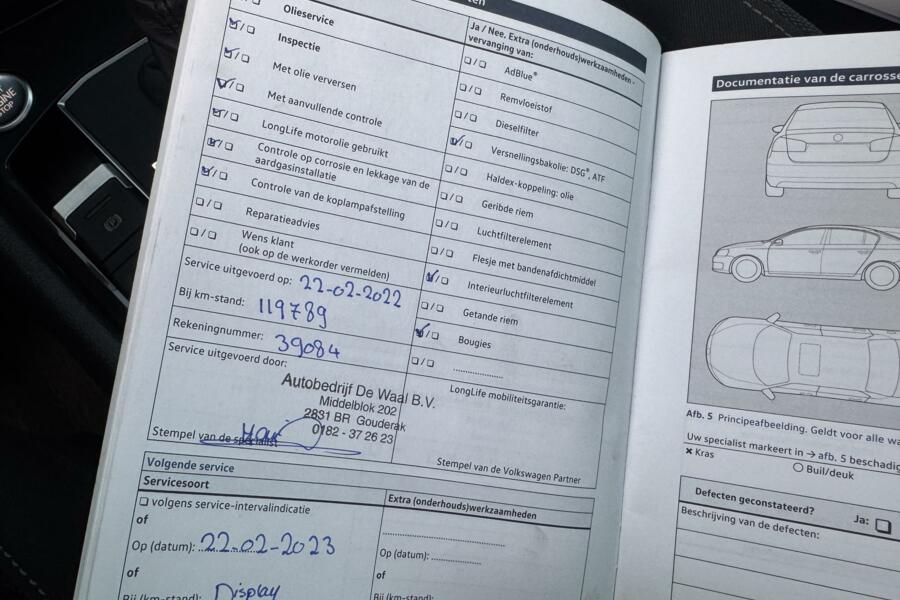 Olieservice
Inspectie
Met olie verversen
Met aanvullende controle
LongLife motorolie gebruikt
Controle op corrosie en lekkage van de
aardgasinstallatie
Controle van de koplampafstelling
Reparatieadvies
Wens klant
(ook op de werkorder vermelden)
Service uitgevoerd op: 22-02-2022
Bij km-stand: 119789
Rekeningnummer: 39084
Service uitgevoerd door:
Autobedrijf De Waal B.V.
Middelblok 202
2831 BR Gouderak
0182 - 37 26 23
Stempel van de specialist
Ja / Nee. Extra (onderhouds)werkzaamheden -
vervanging van:
AdBlue®
Remvloeistof
Dieselfilter
Versnellingsbakolie: DSG®, ATF
Haldex-koppeling: olie
Geribde riem
Luchtfilterelement
Flesje met bandenafdichtmiddel
Interieurluchtfilterelement
Getande riem
Bougies
LongLife mobiliteitsgarantie:
Stempel van de Volkswagen Partner
Volgende service
Servicesoort
volgens service-intervalindicatie
of
Op (datum): 22-02-2023
of
Bij (km-stand): Display
Extra (onderhouds)werkzaamheden
Op (datum):
of
Bij (km-stand):
Documentatie van de carrosse
Afb. 5 Principeafbeelding. Geldt voor alle wa
Uw specialist markeert in → afb. 5 beschadig
× Kras
Buil/deuk
Defecten geconstateerd?
Ja:
Beschrijving van de defecten:
STOP